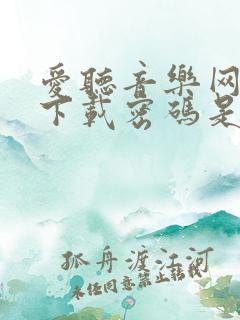 愛聽音樂网
下載密碼是
孤舟渡江河
未任同意禁止転載